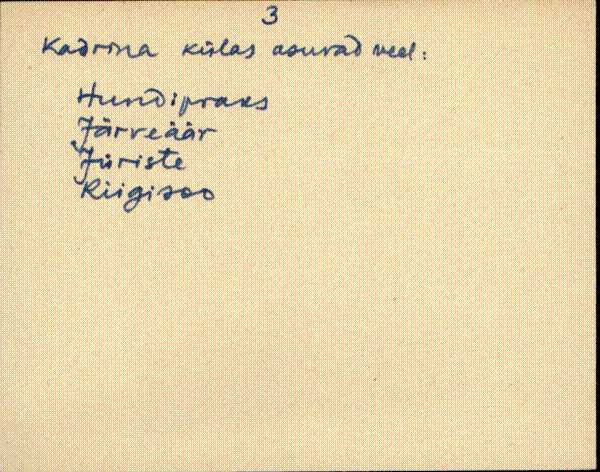 3
Kadrina külas asuvad veel:
Hundipraks
Järveäär
Jüriste
Riigisoo